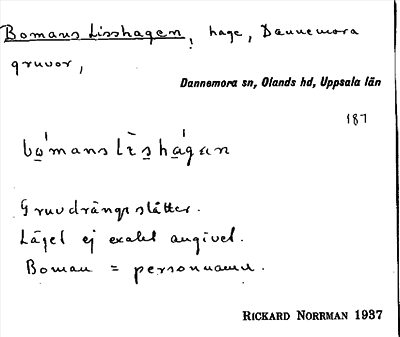 Bomans Lisshagen, hage, Dannemora
gruvor,
Dannemora sn, Olands hd, Uppsala län
187
bo̲'mans lìs̲ha̲'gen
Gruvdrängsslåtter.
Läget ej exakt angivet.
Boman = personnamn.
RICKARD NORRMAN 1937